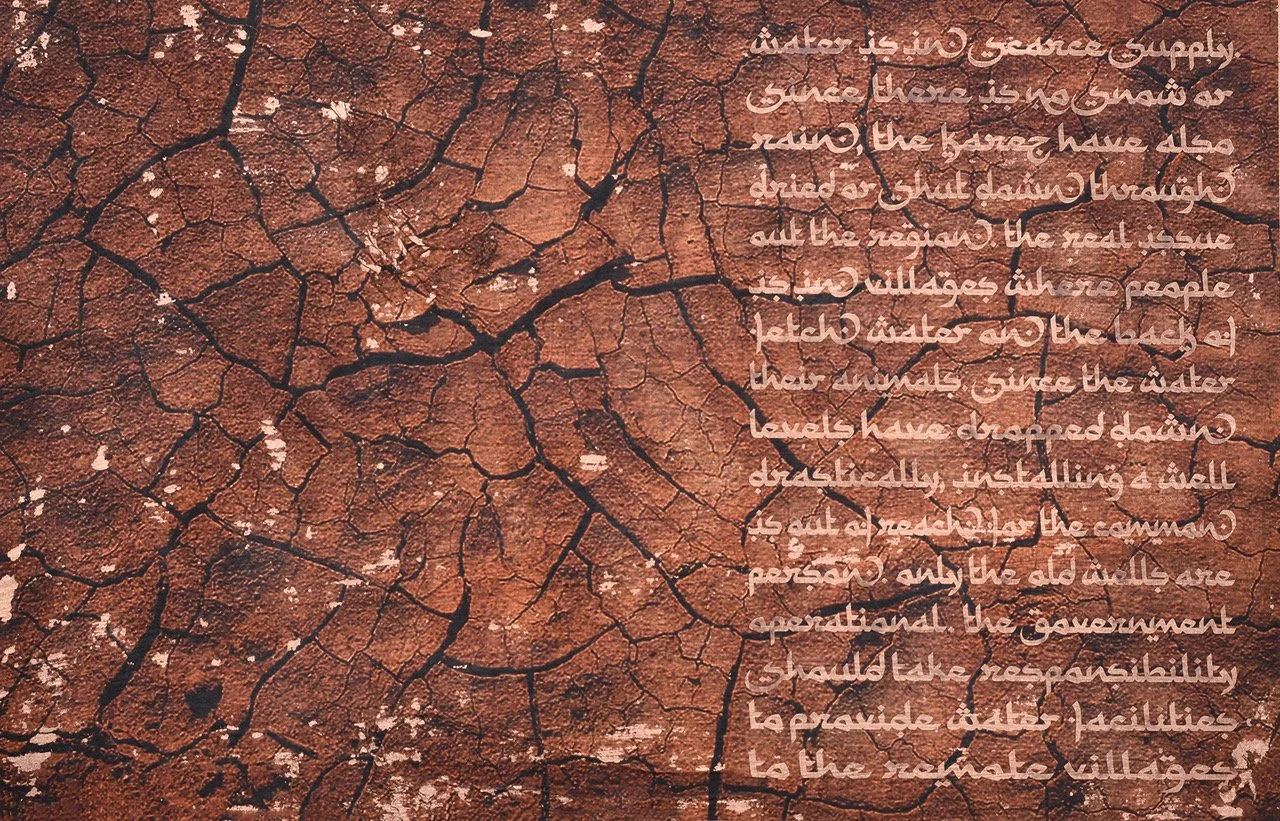 water is in scarce supply.
since there is no snow or
rain, the karez have also
dried or shut down through
out the region. the real issue
is in villages where people
fetch water on the back of
their animals. since the water
levels have dropped down
drastically, installing a well
is out of reach for the common
person. only the old wells are
operational. the government
should take responsibility
to provide water facilities
to the remote villages.